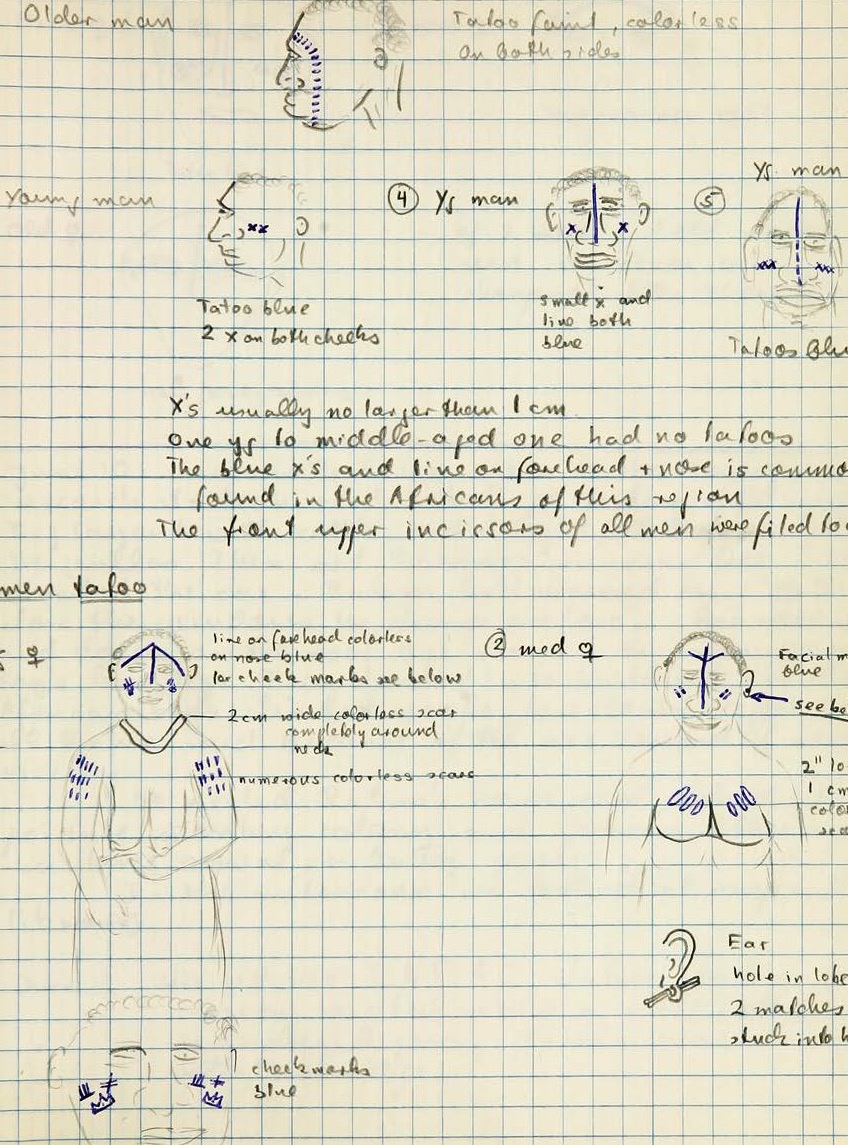 Older man
Tatoo faint, colorless
on both sides
Young man
Tatoo blue
2 x on both cheeks
④ Yg man
small x and
line both
blue
⑤
Yg. man
Tatoos Blu
X's usually no larger than 1 cm
One yg to middle-aged one had no tatoos
The blue x's and line on forehead + nose is commo
found in the Africans of this region
The front upper incissors of all men were filed to
men tatoo
♀
line on forehead colorless
on nose blue
for cheek marks see below
2cm wide colorless scar
completely around
neck
numerous colorless scars
② med ♀
Facial m
blue
see be
2" lo
1 cm
colo
sca
Ear
hole in lobe
2 matches
stuck into h
cheek marks
blue